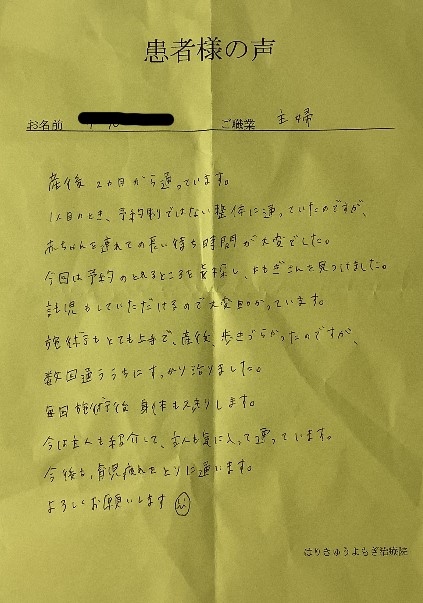 患者様の声
お名前 ご職業 主婦
産後2ヵ月から通っています。
1人目のとき、予約制ではない整体に通っていたのですが、
赤ちゃんを連れての長い待ち時間が大変でした。
今回は予約のとれるところを探し、よもぎさんを見つけました。
託児もしていただけるので大変助かっています。
施術もとても上手で、産後、歩きづらかったのですが、
数回通ううちにすっかり治りました。
毎回施術後身体もスッキリします。
今は主人も紹介して、主人も気に入って通っています。
今後も、育児疲れをとりに通います。
よろしくお願いします
はりきゅうよもぎ治療院